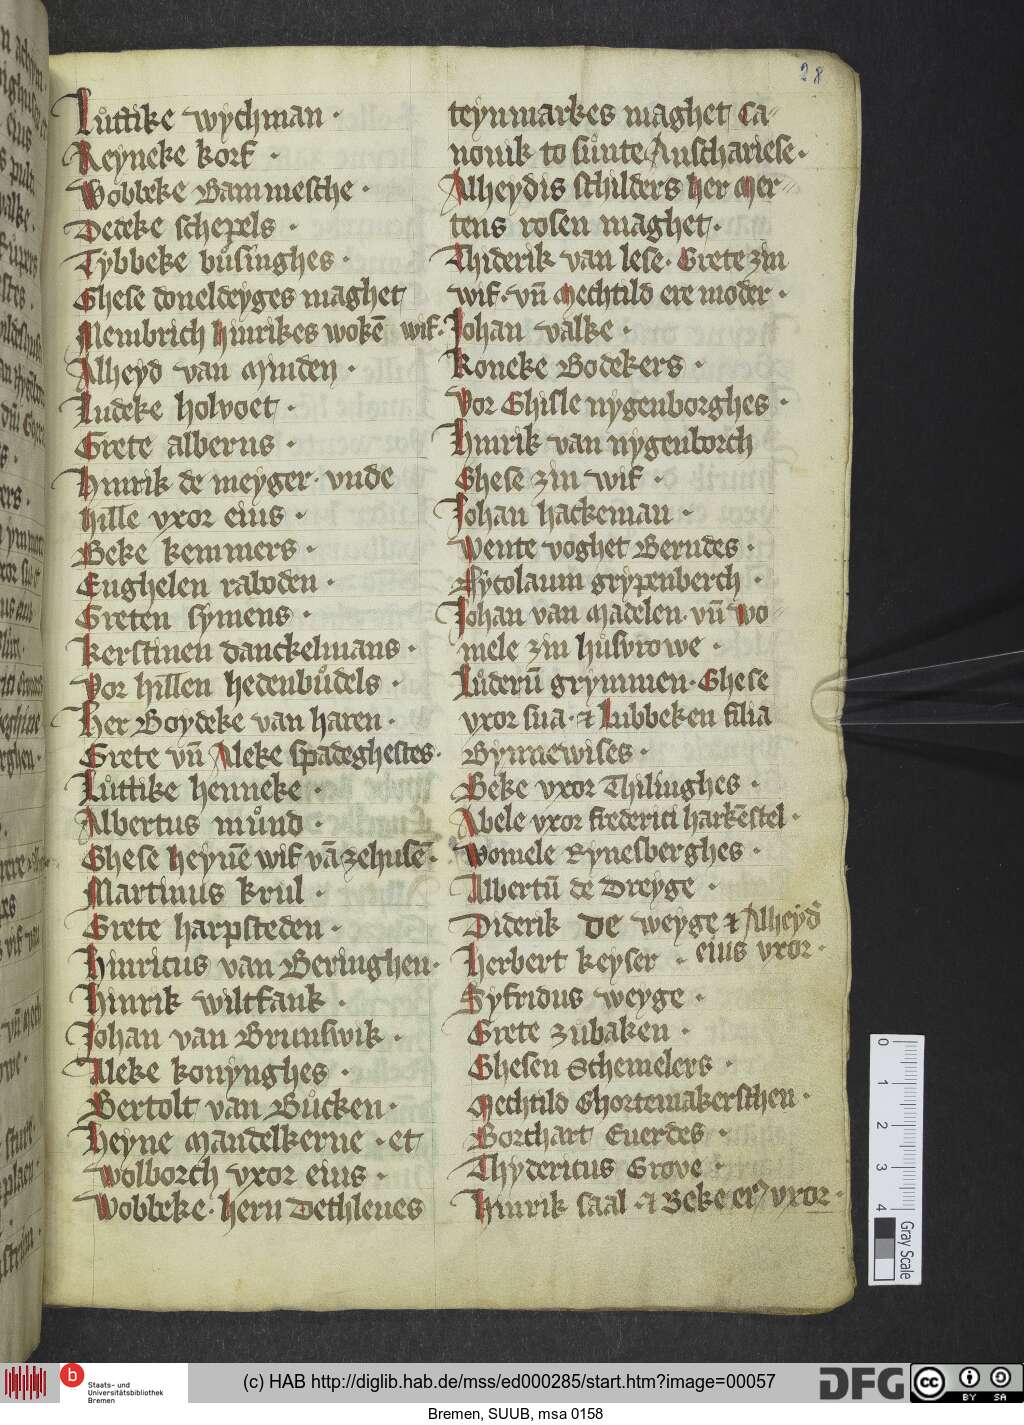 28
Lůttike wychman ·
Reyneke korf ·
Wobbeke Bammesche ·
Dedeke schepels ·
Tybbeke bůsinghes ·
Ghese doneldeyges maghet
Membrich hinrikes wokē wif ·
Alheyd van Minden ·
Ludeke holvoet ·
Grete alberns ·
Hinrik de meyger · vnde
hille vxor eius ·
Beke kemmers ·
Enghelen raboden ·
Greten symens ·
Kerstinen danckelmans ·
Vor hillen hedenbůdels ·
Her Boydeke van haren ·
Grete vn̄ Aleke spadeghestes ·
Lůttike henneke ·
Albertus můnd ·
Ghese heynē wif vā zehusē ·
Martinus krul ·
Grete harpsteden ·
Hinricus van Beringhen ·
Hinrik wiltfank ·
Johan van Brunswik ·
Aleke konynghes ·
Bertolt van Bůcken ·
Heyne Mandelkerne · et
Wolborch vxor eius ·
Wobbeke · hern Dethleues
teynmarkes maghet Ca-
nonik to sůnte Anschariese ·
Alheydis schilders her Mer-
tens rosen maghet ·
Thiderik van lese · Grete zin
wif · vn̄ Mechtild ere moder ·
Johan valke ·
Koneke Bodekers ·
Vor Ghisle nygenborghes ·
Hinrik van nygenborch
Ghese zin wif ·
Johan hackeman ·
Wente voghet Berndes ·
Nycolaum grypenberch ·
Johan van Madelen · vn̄ Wo-
mele zin hůsvrowe ·
Lůderū grymmen · Ghese
vxor sua · et Lubbeken filia
Bynnewises ·
Beke vxor Thilinghes ·
Abele vxor frederici harkēstel ·
Womele Rynesberghes ·
Albertū de Dreyge ·
Diderik de weyge et Alheyd
eius vxor ·
Herbert keyser ·
Syfridus weyge ·
Grete zubaken ·
Ghesen Schemelers ·
Mechtild Ghortemakerschen ·
Borchart Euerdes ·
Thydericus Grove ·
Hinrik saal · et Beke ei9 vxor ·
0 1 2 3 4
Gray Scale
b Staats- und
Universitätsbibliothek
Bremen
(c) HAB http://diglib.hab.de/mss/ed000285/start.htm?image=00057
DFG
cc BY SA
Bremen, SUUB, msa 0158